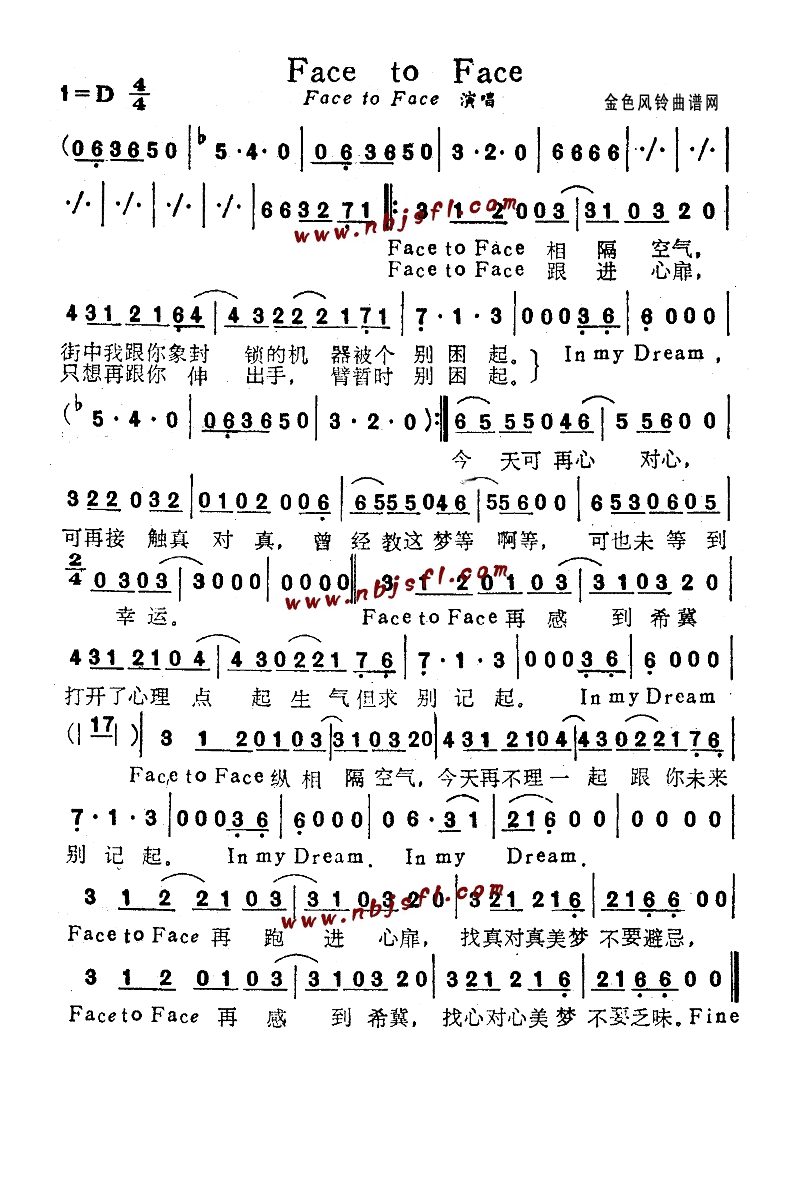 Face to Face
1=D 4/4 Face to Face 演唱 金色风铃曲谱网
(063650|♭5·4·0|063650|3·2·0|6666|·/·|·/·|
·/·|·/·|·/·|·/·|663271|‖:3 1 2 2003|310320|
www.nbjsfl.com
Face to Face 相 隔 空气,
Face to Face 跟 进 心扉,
4312164|43222171|7·1·3|00036|6000|
街中我跟你象封 锁的机 器被个 别困起。} In my Dream,
只想再跟你 伸 出手, 臂暂时 别困起。}
(♭5·4·0|063650|3·2·0):‖6555046|55600|
今 天可 再心 对心,
322032|0102006|6555046|55600|6530605|
可再接 触真 对 真, 曾 经 教这梦等 啊等, 可也未 等 到
2/4 0303|3000|0000‖3 1 20103|310320|
www.nbjsfl.com
幸 运。 Face to Face 再 感 到 希冀
4312104|43022176|7·1·3|00036|6000|
打开了心理 点 起 生 气但求 别记 起。 In my Dream
(|17|) 3 1 20103|310320|4312104|43022176|
Face to Face 纵 相 隔 空气, 今天再不理 一 起 跟 你未来
7·1·3|00036|6000|06·31|21600|0000|
别 记 起。 In my Dream. In my Dream.
3 1 2 2103|310320|321216|216600|
www.nbjsfl.com
Face to Face 再 跑 进 心扉, 找真对真美梦 不要避忌,
3 1 2 0103|310320|321216|216600‖
Face to Face 再 感 到 希冀, 找心对心美 梦 不要乏味。Fine